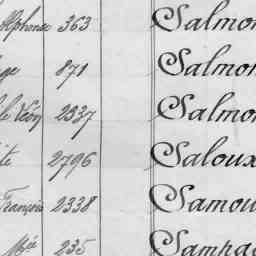 Alphonse 363 Salmon
871 Salmon
Léon 2537 Salmon
2796 Saloux
François 2338 Samou
Mie 235 Sampa